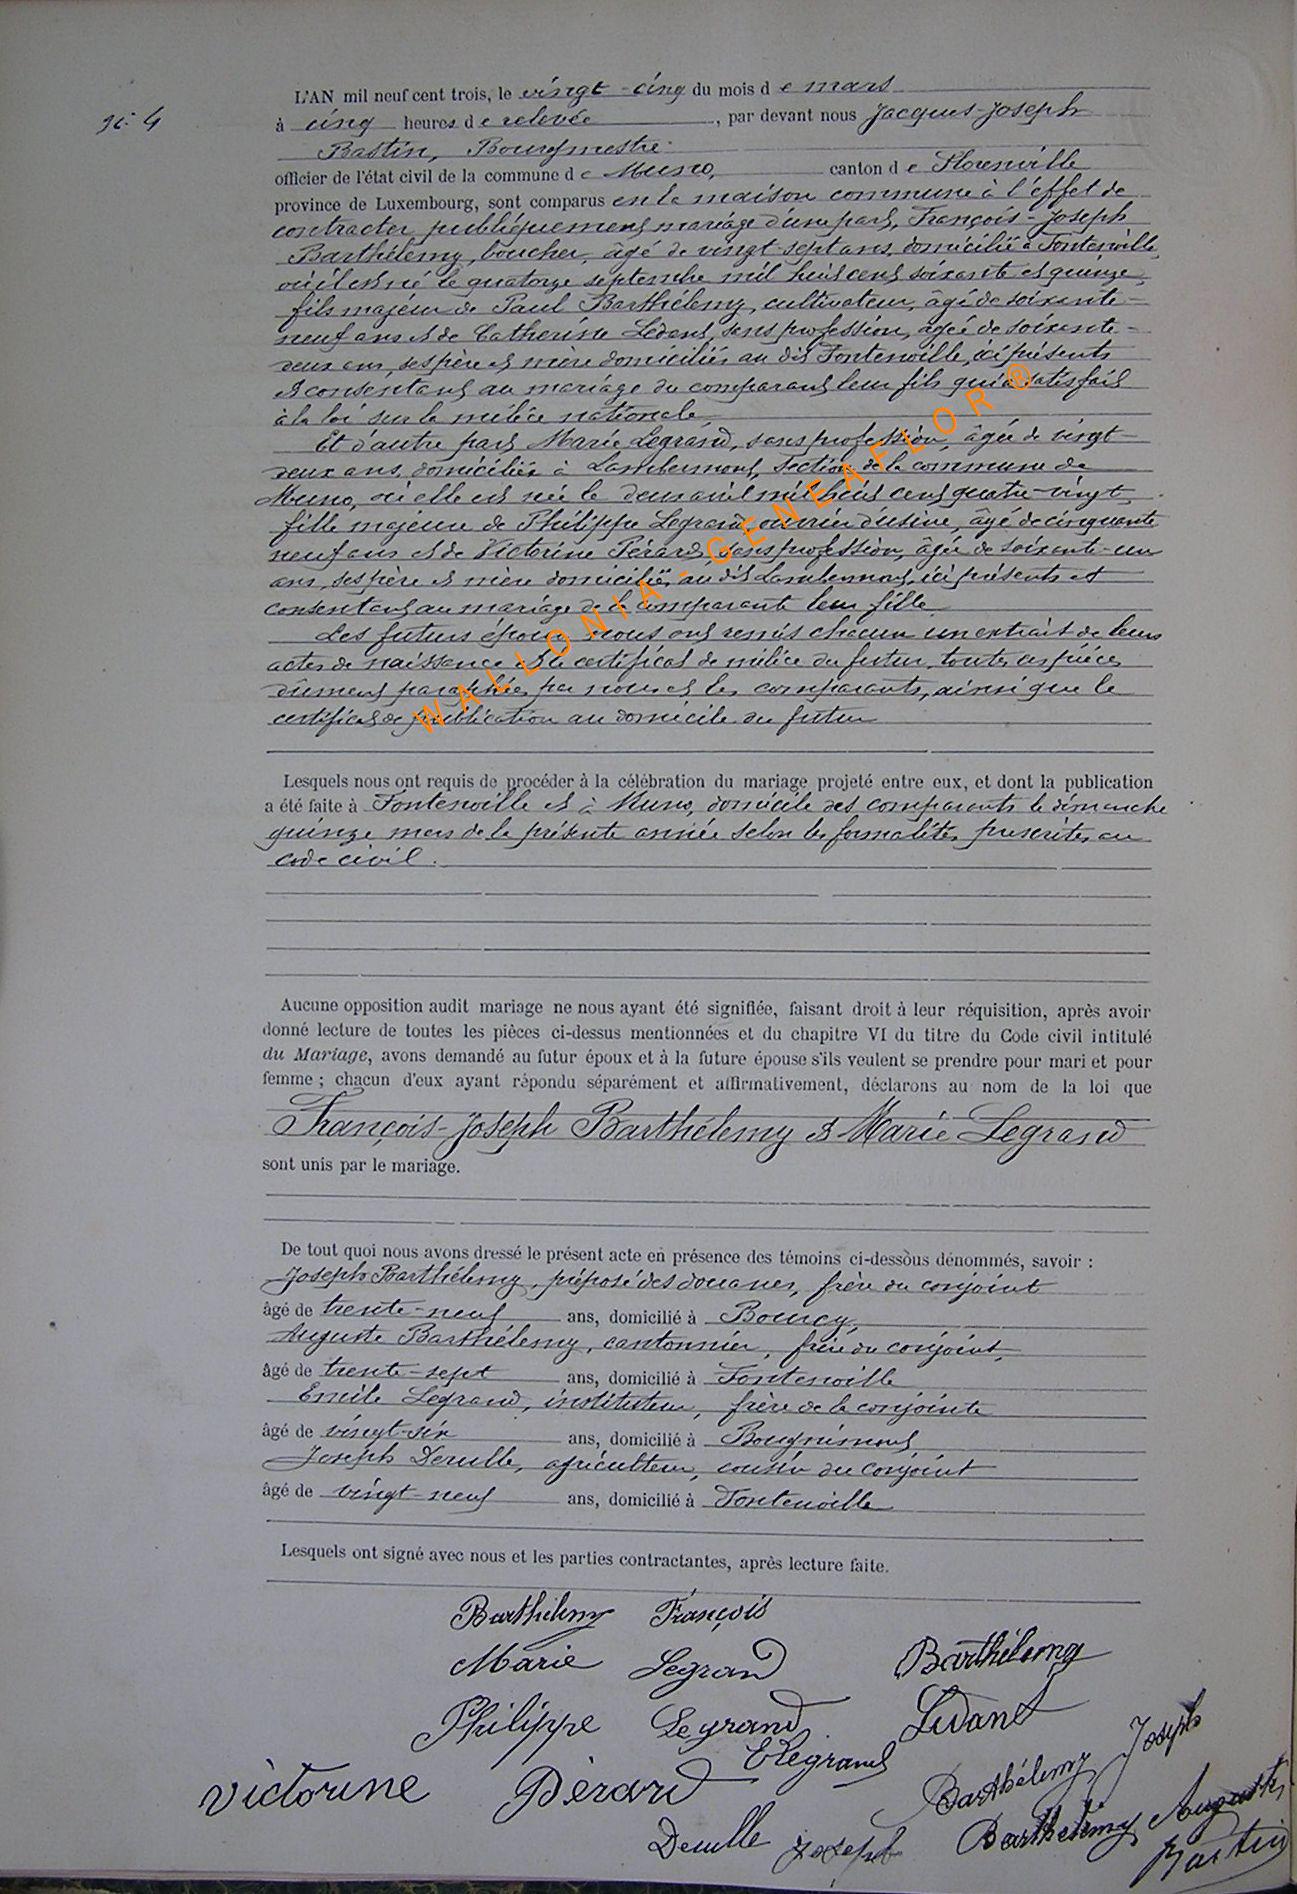 N° 4
L'AN mil neuf cent trois, le vingt-cinq du mois de mars
à cinq heures de relevée, par devant nous Jacques-Joseph
Bastin, Bourgmestre
officier de l'état civil de la commune de Muno, canton de Florenville
province de Luxembourg, sont comparus en la maison commune à l'effet de
contracter publiquement mariage d'une part, François-Joseph
Barthélemy, boucher, âgé de vingt-sept ans, domicilié à Fontenoille,
où il est né le quatorze septembre mil huit cent soixante et quinze,
fils majeur de Paul Barthélemy, cultivateur, âgé de soixante-
neuf ans et de Catherine Ledant, sans profession, âgée de soixante-
deux ans, ses père et mère domiciliés au dit Fontenoille, ici présents
et consentant au mariage du comparant leur fils qui a satisfait
à la loi sur la milice nationale,
Et d'autre part Marie Legrand, sans profession, âgée de vingt-
deux ans, domiciliée à Lambermont, section de la commune de
Muno, où elle est née le deux avril mil huit cent quatre-vingt,
fille majeure de Philippe Legrand, ouvrier d'usine, âgé de cinquante
neuf ans et de Victorine Pérard, sans profession, âgée de soixante-un
ans, ses père et mère domiciliés au dit Lambermont, ici présents et
consentant au mariage de la comparante leur fille.
Les futurs époux nous ont remis chacun un extrait de leurs
actes de naissance et le certificat de milice du futur, toutes ces pièces
dûment paraphées par nous et les comparants, ainsi que le
certificat de publication au domicile du futur
WALLONIA-GENEAFLOR ®
Lesquels nous ont requis de procéder à la célébration du mariage projeté entre eux, et dont la publication
a été faite à Fontenoille et à Muno, domicile des comparants le dimanche
quinze mars de la présente année selon les formalités prescrites au
code civil.
Aucune opposition audit mariage ne nous ayant été signifiée, faisant droit à leur réquisition, après avoir
donné lecture de toutes les pièces ci-dessus mentionnées et du chapitre VI du titre du Code civil intitulé
du Mariage, avons demandé au futur époux et à la future épouse s'ils veulent se prendre pour mari et pour
femme ; chacun d'eux ayant répondu séparément et affirmativement, déclarons au nom de la loi que
François-Joseph Barthélemy et Marie Legrand
sont unis par le mariage.
De tout quoi nous avons dressé le présent acte en présence des témoins ci-dessous dénommés, savoir :
Joseph Barthélemy, préposé des douanes, frère du conjoint
âgé de trente-neuf ans, domicilié à Bourcy,
Auguste Barthélemy, cantonnier, frère du conjoint,
âgé de trente-sept ans, domicilié à Fontenoille
Emile Legrand, instituteur, frère de la conjointe
âgé de vingt-six ans, domicilié à Bougnimont
Joseph Derulle, agriculteur, cousin du conjoint
âgé de vingt-neuf ans, domicilié à Fontenoille
Lesquels ont signé avec nous et les parties contractantes, après lecture faite.
Barthélemy François
Marie Legrand Barthélemy
Philippe Legrand Ledant
E Legrand
Victorine Pérard Barthélemy Joseph
Derulle Joseph Barthélemy Auguste
Bastin